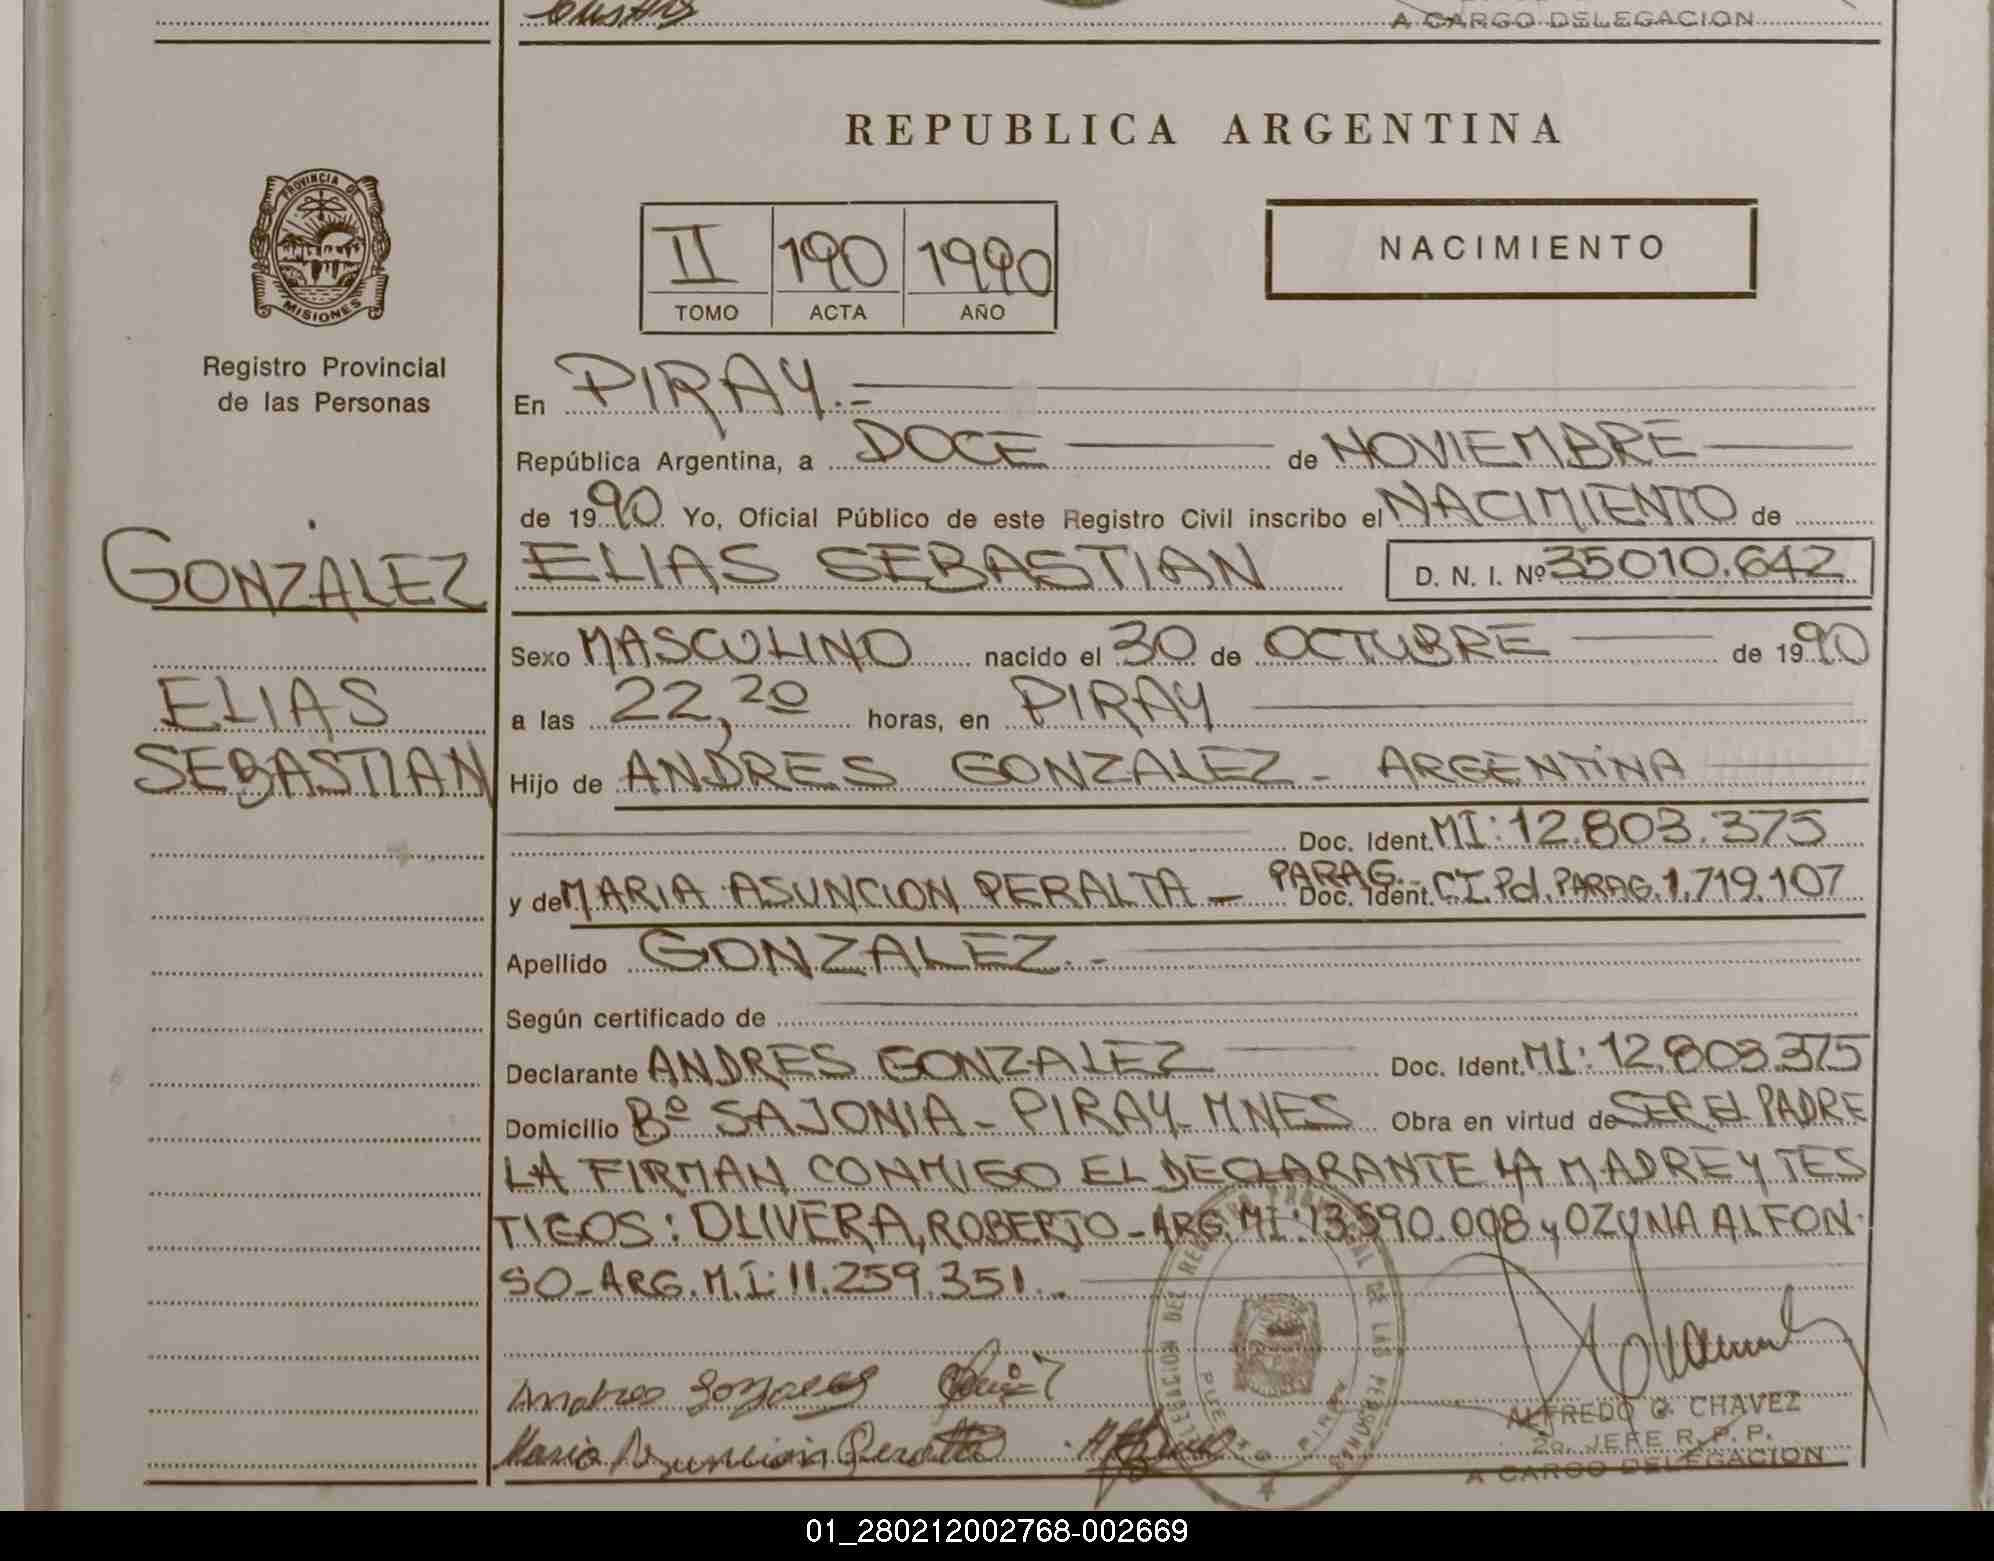 A CARGO DELEGACION
REPUBLICA ARGENTINA
PROVINCIA DE
MISIONES
II 190 1990
TOMO ACTA AÑO
NACIMIENTO
Registro Provincial
de las Personas
GONZALEZ
ELIAS
SEBASTIAN
En PIRAY.-
República Argentina, a DOCE de NOVIEMBRE
de 1990 Yo, Oficial Público de este Registro Civil inscribo el NACIMIENTO de
ELIAS SEBASTIAN D. N. I. Nº 35010.642
Sexo MASCULINO nacido el 30 de OCTUBRE de 1990
a las 22,20 horas, en PIRAY
Hijo de ANDRES GONZALEZ - ARGENTINA
Doc. Ident. MI: 12.803.375
y de MARIA ASUNCION PERALTA - PARAG. Doc. Ident. CI. Pcl. PARAG. 1.719.107
Apellido GONZALEZ.-
Según certificado de
Declarante ANDRES GONZALEZ Doc. Ident. MI: 12.803.375
Domicilio Bº SAJONIA - PIRAY - MNES Obra en virtud de SER EL PADRE
LA FIRMAN CONMIGO EL DECLARANTE LA MADRE Y TES
TIGOS: OLIVERA, ROBERTO - ARG. MI: 13.590.098 y OZUNA ALFON-
SO - ARG. M.I: 11.259.351..
Andres Gonzales
Maria Asuncion Peralta
ALFREDO O. CHAVEZ
2o. JEFE R. P. P.
A CARGO DELEGACION
01_280212002768-002669